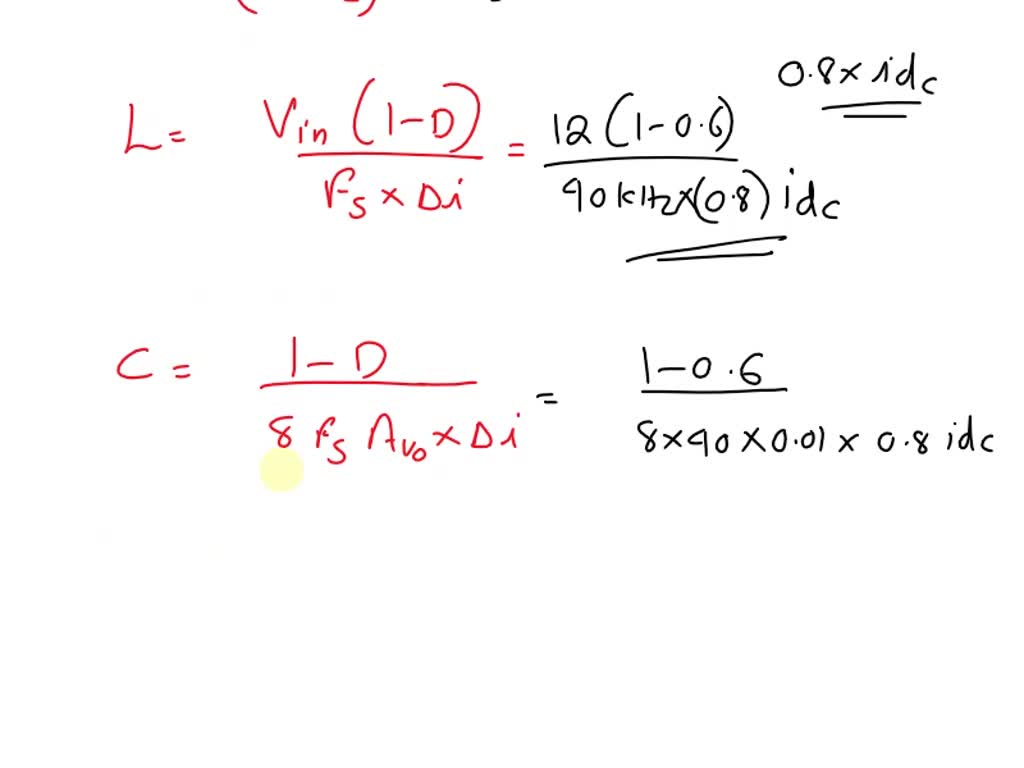 0.8× idc
L = Vin (1-D) / Fs × Δi = 12 (1-0.6) / 90kHz×(0.8) idc
C = 1-D / 8 Fs Δvo × Δi = 1-0.6 / 8×90×0.01× 0.8 idc